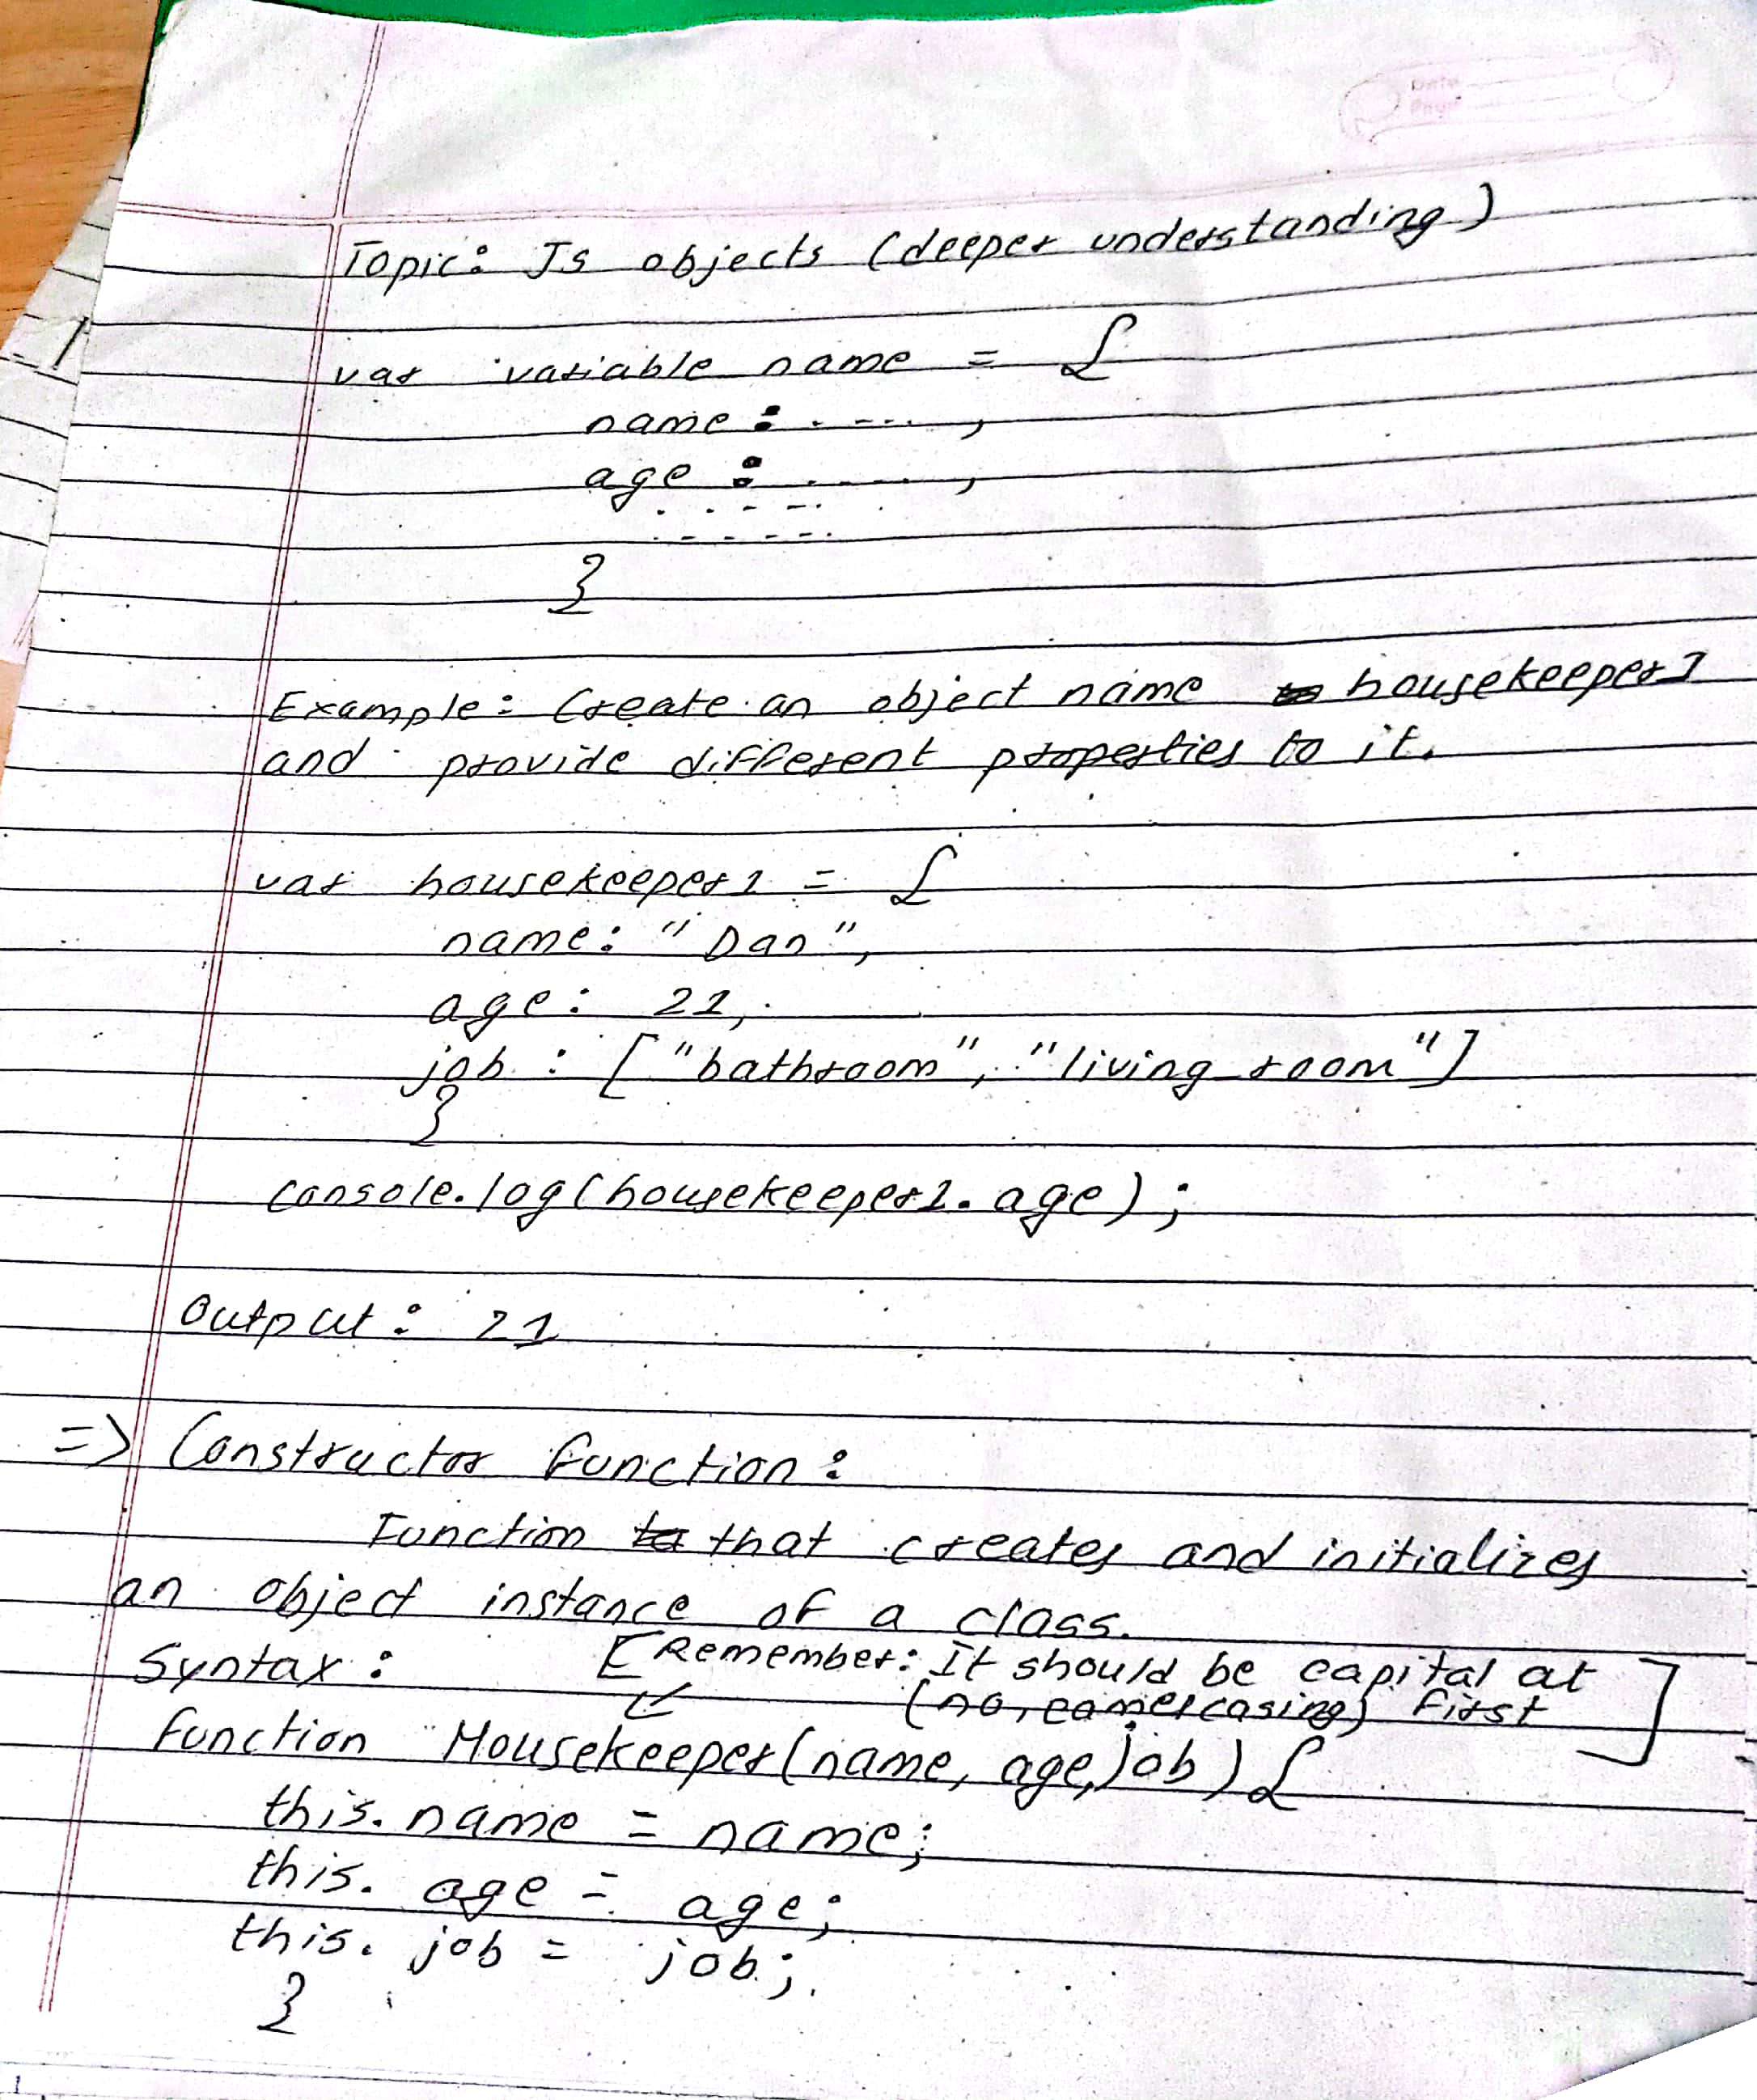 Topic: Js objects (deeper understanding)
var variable name = {
name : . - - .. ,
age : . . - . . ,
. . - - .
. - - - - .
}
Example: Create an object name housekeeper1
and provide different properties to it.
var housekeeper1 = {
name: "Dan",
age: 21,
job : ["bathroom", "living room"]
}
console.log(housekeeper1.age);
Output: 21
=> Constructor function:
Function that creates and initializes
an object instance of a class.
Syntax : [Remember: It should be capital at
(no, camel casing) first]
function Housekeeper(name, age, job) {
this.name = name;
this. age = age;
this. job = job;
}